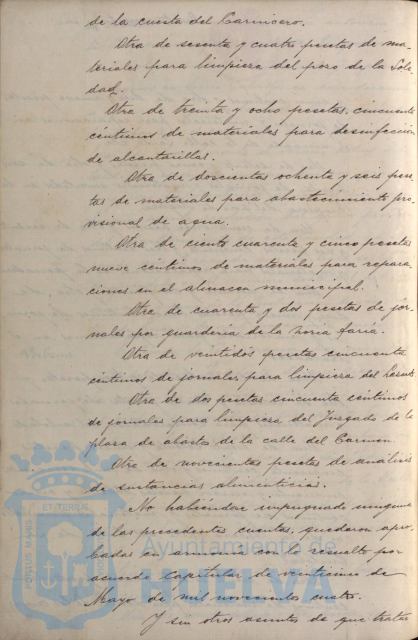 de la cuesta del Carnicero.
Otra de sesenta y cuatro pesetas de ma-
teriales para limpieza del pozo de la Sole
dad.
Otra de treinta y ocho pesetas, cincuenta
céntimos de materiales para desinfección
de alcantarillas.
Otra de doscientas ochenta y seis pese
tas de materiales para abastecimiento pro
visional de agua.
Otra de ciento cuarenta y cinco pesetas
nueve céntimos de materiales para repara
ciones en el almacen municipal.
Otra de cuarenta y dos pesetas de jor-
nales por guardería de la noria
Otra de veintidos pesetas cincuenta
céntimos de jornales para limpieza del
Otra de dos pesetas cincuenta céntimos
de jornales para limpieza del Juzgado de la
plaza de abastos de la calle del Carmen
Otra de novecientas pesetas de análisis
de sustancias alimenticias.
No habiéndose impugnado ninguna
de las precedentes cuentas, quedaron apro
badas en armonía con lo resuelto por
acuerdo capitular de veinticinco de
Mayo de mil novecientos cuatro.
Y sin otros asuntos de que tratar
PORTUS MARIS ET TERRAE CUSTODIA
Ayuntamiento de
HUELVA